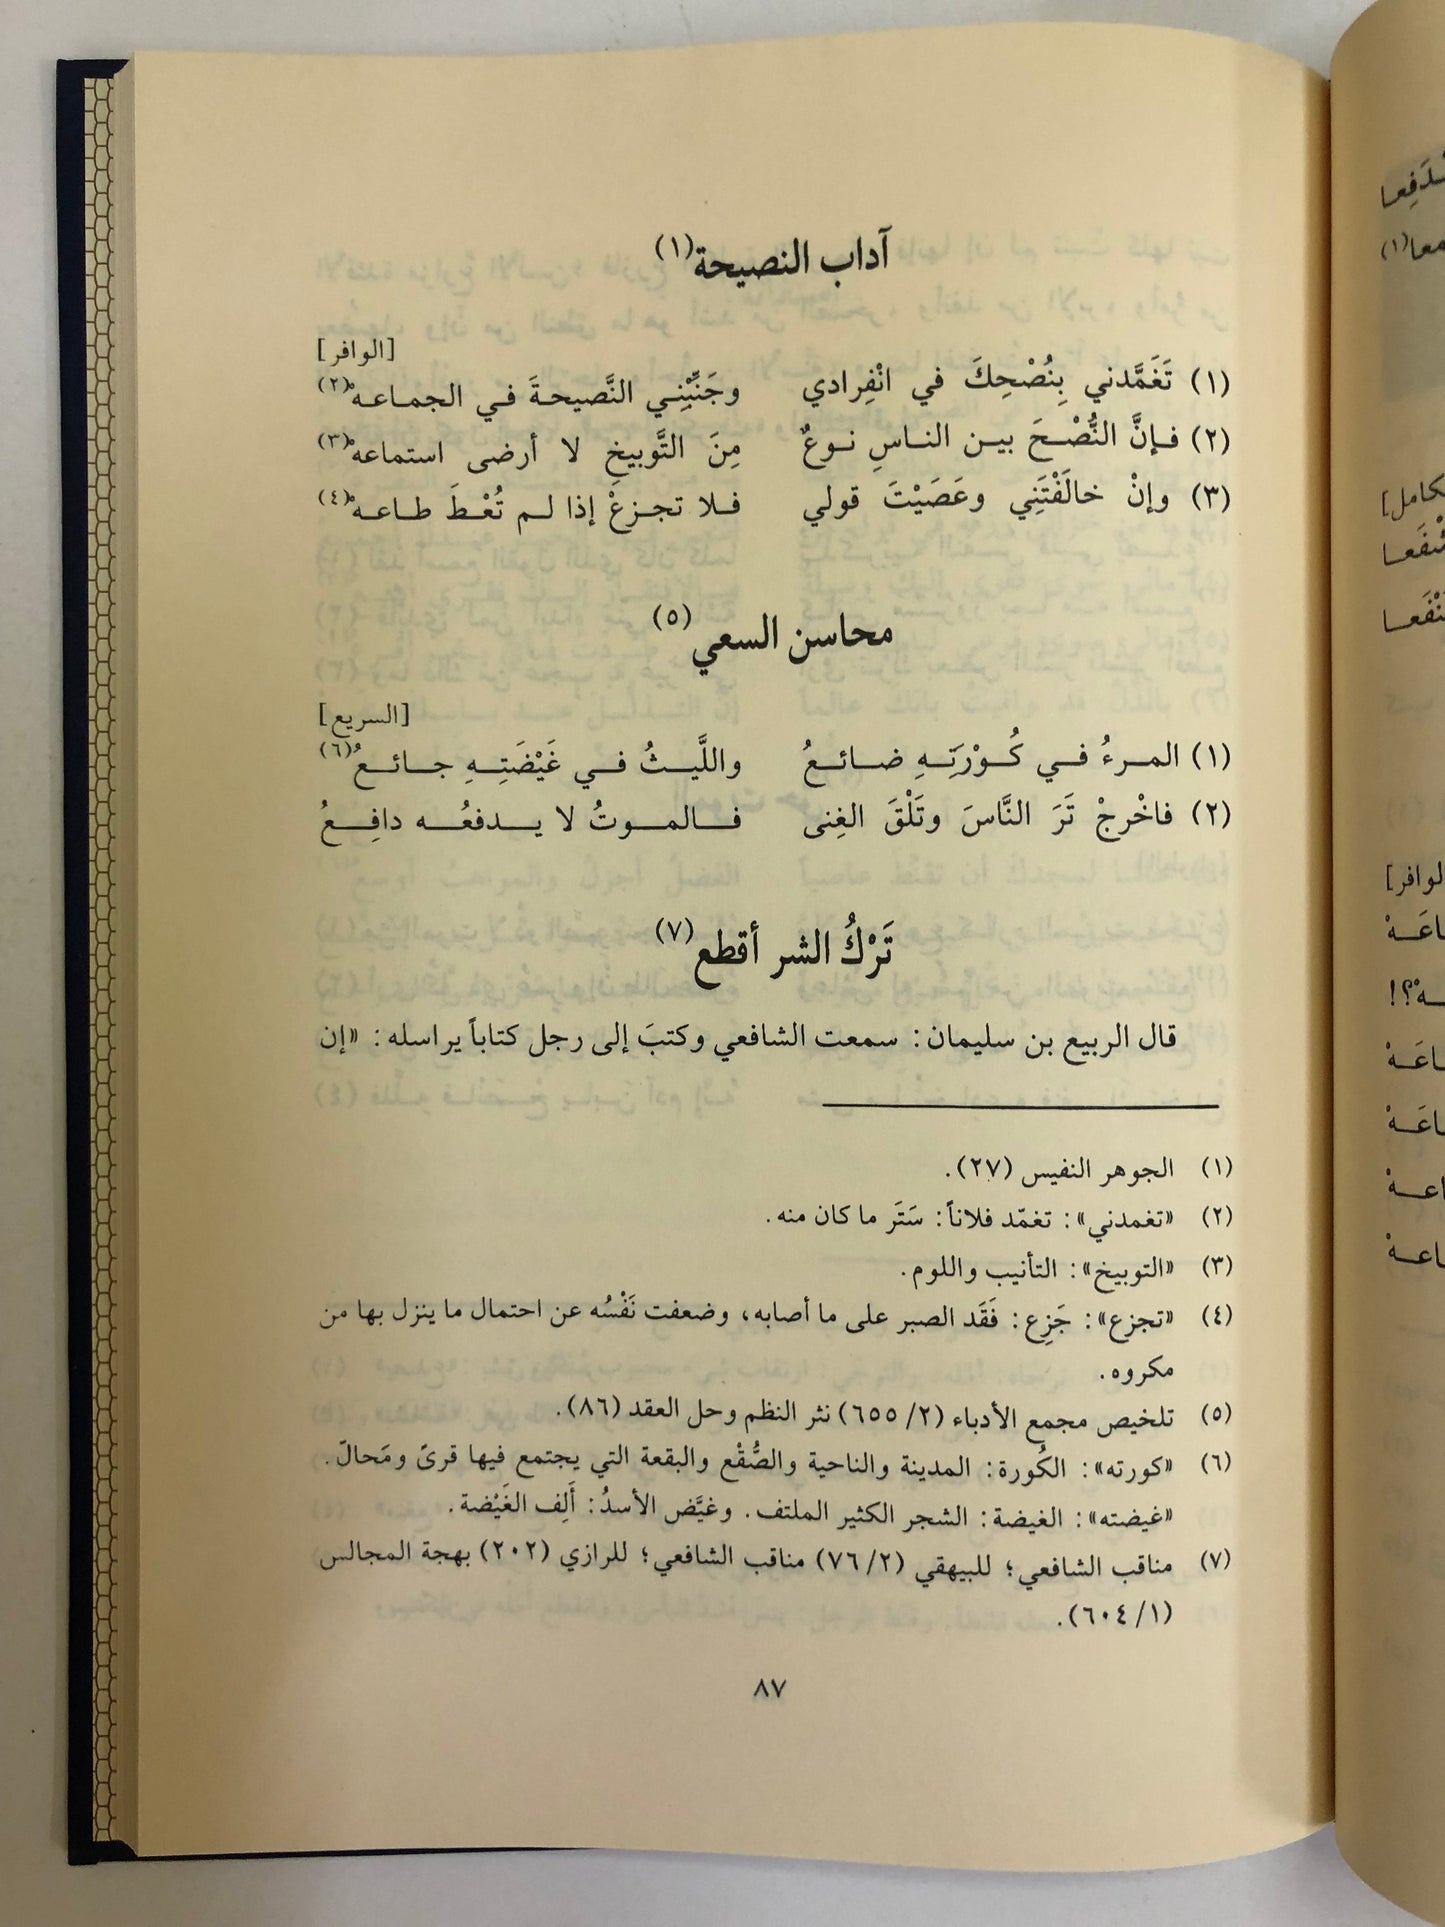 آداب النصيحة(١)
[الوافر]
(١) تَغَمَّدني بِنُصْحِكَ في انْفِرادي وجَنِّبْنِي النَّصيحةَ في الجماعهْ(٢)
(٢) فإنَّ النُّصْحَ بين الناسِ نوعٌ مِنَ التَّوبيخِ لا أرضى استماعهْ(٣)
(٣) وإنْ خالَفْتَنِي وعَصَيْتَ قولي فلا تجزعْ إذا لم تُعْطَ طاعهْ(٤)
محاسن السعي(٥)
[السريع]
(١) المرءُ في كُوْرَتِهِ ضائعُ واللَّيثُ في غَيْضَتِهِ جائعُ(٦)
(٢) فاخْرجْ تَرَ النَّاسَ وتَلْقَ الغِنى فالموتُ لا يدفعُه دافِعُ
تَرْكُ الشر أقطع(٧)
قال الربيع بن سليمان: سمعت الشافعي وكتبَ إلى رجل كتاباً يراسله: «إن
(١) الجوهر النفيس (٢٧).
(٢) «تغمدني»: تغمّد فلاناً: سَتَر ما كان منه.
(٣) «التوبيخ»: التأنيب واللوم.
(٤) «تجزع»: جَزِع: فَقَد الصبر على ما أصابه، وضعفت نَفْسُه عن احتمال ما ينزل بها من
مكروه.
(٥) تلخيص مجمع الأدباء (٢/ ٦٥٥) نثر النظم وحل العقد (٨٦).
(٦) «كورته»: الكُورة: المدينة والناحية والصُّقْع والبقعة التي يجتمع فيها قرىً ومَحالّ.
«غيضته»: الغيضة: الشجر الكثير الملتف. وغيَّض الأسدُ: أَلِف الغَيْضة.
(٧) مناقب الشافعي؛ للبيهقي (٢/ ٧٦) مناقب الشافعي؛ للرازي (٢٠٢) بهجة المجالس
(١/ ٦٠٤).
٨٧
معا(١)